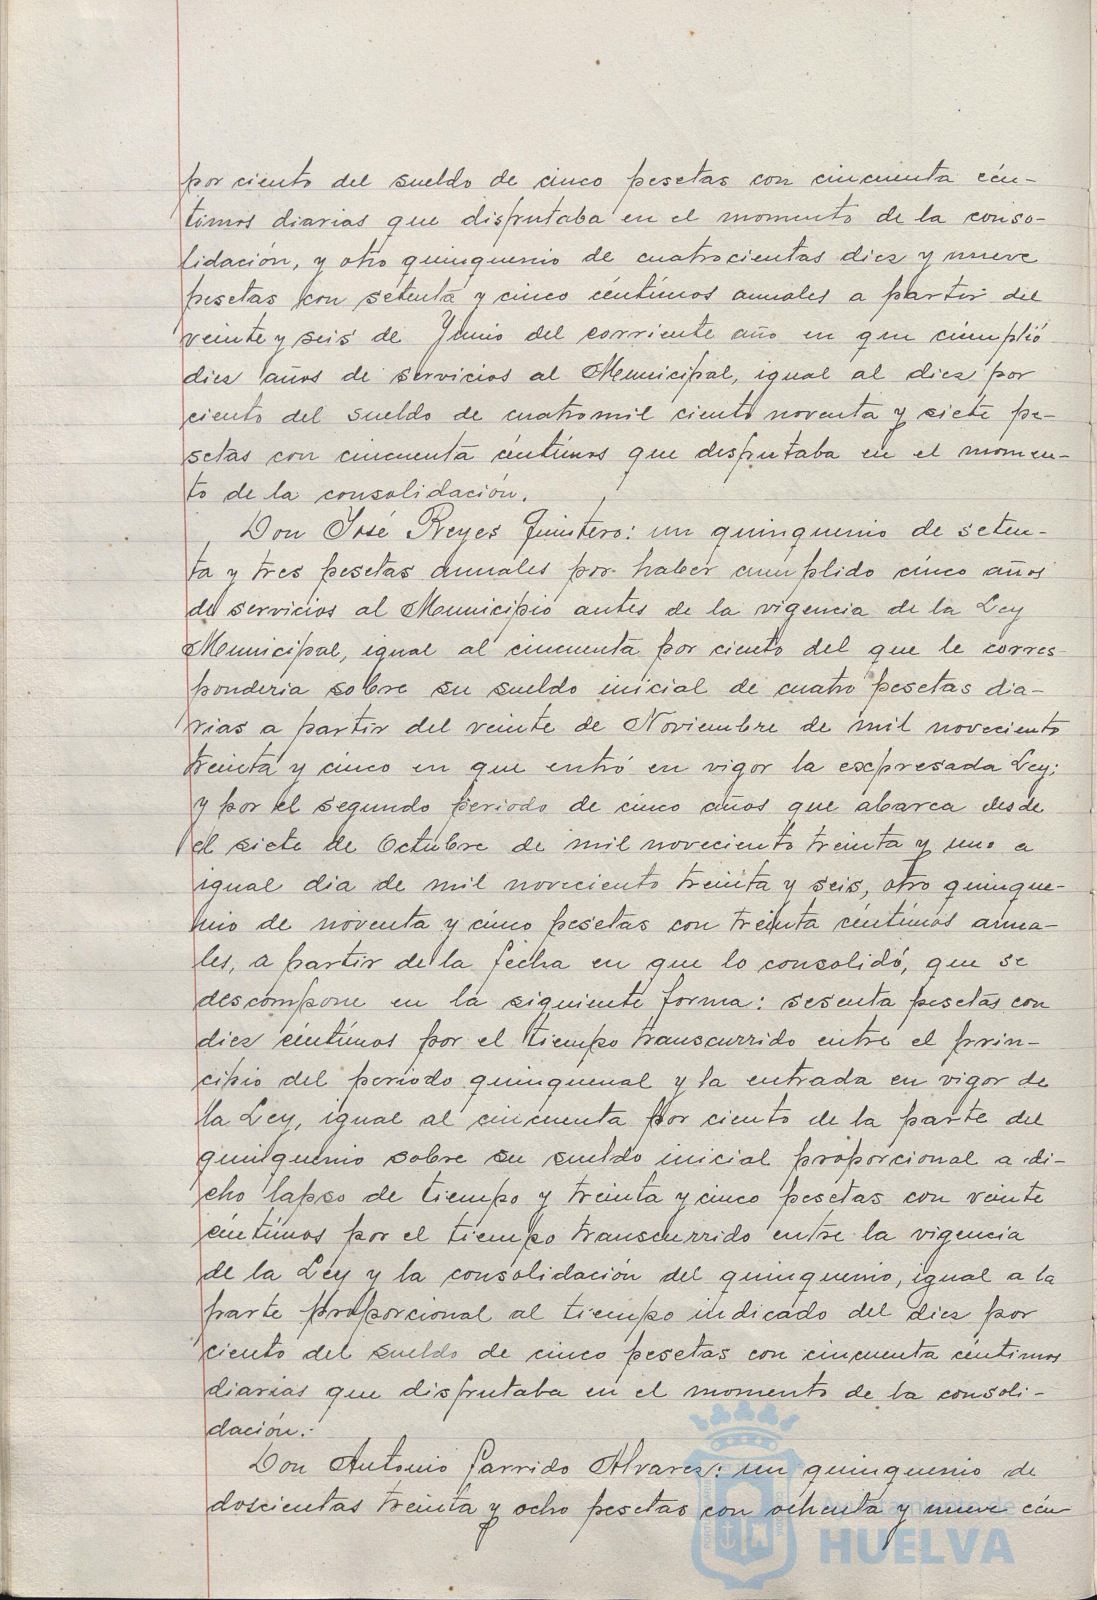 por ciento del sueldo de cinco pesetas con cincuenta cén-
timos diarias que disfrutaba en el momento de la conso-
lidación, y otro quinquenio de cuatrocientas diez y nueve
pesetas con setenta y cinco céntimos anuales a partir del
veinte y seis de Junio del corriente año en que cumplió
diez años de servicios al Municipal, igual al diez por
ciento del sueldo de cuatromil ciento noventa y siete pe-
setas con cincuenta céntimos que desfrutaba en el momen-
to de la consolidación.
Don José Reyes Quintero: un quinquenio de seten-
ta y tres pesetas anuales por haber cumplido cinco años
de servicios al Municipio antes de la vigencia de la Ley
Municipal, igual al cincuenta por ciento del que le corres-
ponderia sobre su sueldo inicial de cuatro pesetas dia-
rias a partir del veinte de Noviembre de mil noveciento
treinta y cinco en que entró en vigor la expresada Ley;
y por el segundo periodo de cinco años que abarca desde
el siete de Octubre de mil noveciento treinta y uno a
igual dia de mil noveciento treinta y seis, otro quinque-
nio de noventa y cinco pesetas con treinta céntimos anua-
les, a partir de la fecha en que lo consolidó, que se
descompone en la siguiente forma: sesenta pesetas con
diez céntimos por el tiempo transcurrido entre el prin-
cipio del periodo quinquenal y la entrada en vigor de
la Ley, igual al cincuenta por ciento de la parte del
quinquenio sobre su sueldo inicial proporcional a di-
cho lapso de tiempo y treinta y cinco pesetas con veinte
céntimos por el tiempo transcurrido entre la vigencia
de la Ley y la consolidación del quinquenio, igual a la
parte proporcional al tiempo indicado del diez por
ciento del sueldo de cinco pesetas con cincuenta céntimos
diarias que disfrutaba en el momento de la consoli-
dación.-
Don Antonio Garrido Alvarez: un quinquenio de
doscientas treinta y ocho pesetas con ochenta y nueve cén
Ayuntamiento de
HUELVA